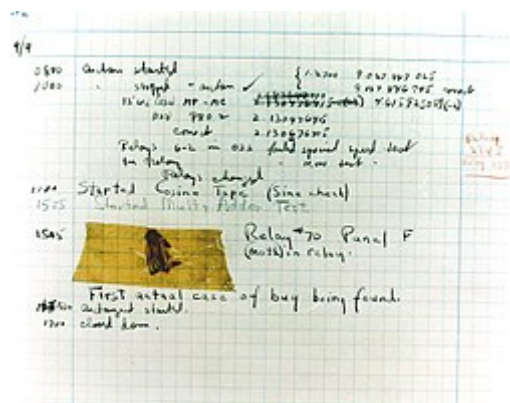 9/9
0800 Antan started
1000 " stopped - antan ✓ { 1.2700 9.037 847 025
9.037 846 795 correct
13"uc (032) MP-MC 2.130476415 (-3) 4.615925059(-2)
033 PRO 2 2.130476415
correct 2.130676415
Relays 6-2 in 033 failed special speed test
in relay
Relays changed
1100 Started Cosine Tape (Sine check)
1525 Started Multi Adder Test.
1545 Relay #70 Panel F
(moth) in relay.
First actual case of bug being found.
antangent started.
1700 closed down.